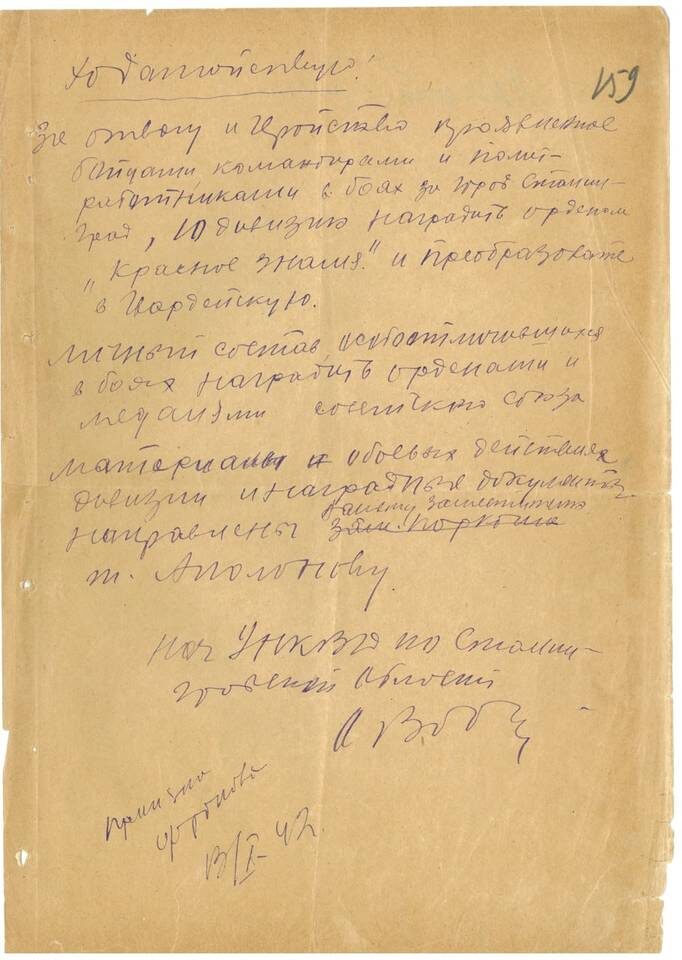 Ходатойствую!
159
За отвагу и Геройство проявленное
бойцами командирами и полит-
работниками в боях за город Сталин-
град, 10 дивизию наградить орденом
"Красное знамя" и преобразовать
в Гвардейскую.
Личный состав, особоотличившихся
в боях наградить орденами и
медалями советского союза
Материалы о боевых действиях
дивизии и наградные документы
Вашему заместителю
направлены зам. Наркома
т. Аполонову.
Нач УНКВД по Сталин-
градской области
13/X-42.